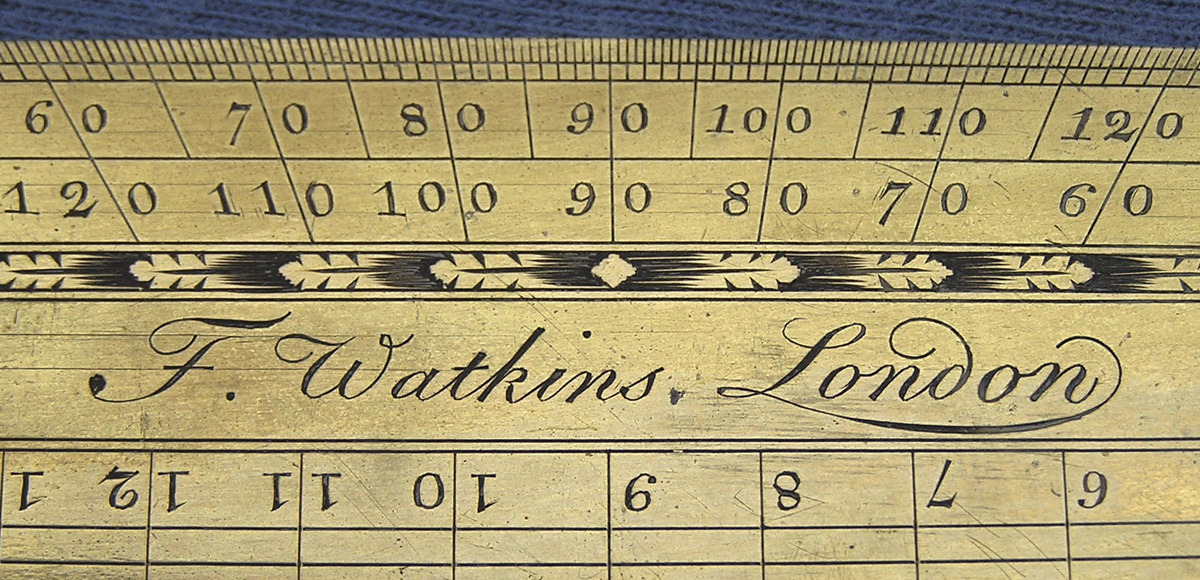 60 70 80 90 100 110 120
120 110 100 90 80 70 60
F. Watkins. London
6 7 8 9 10 11 12 1